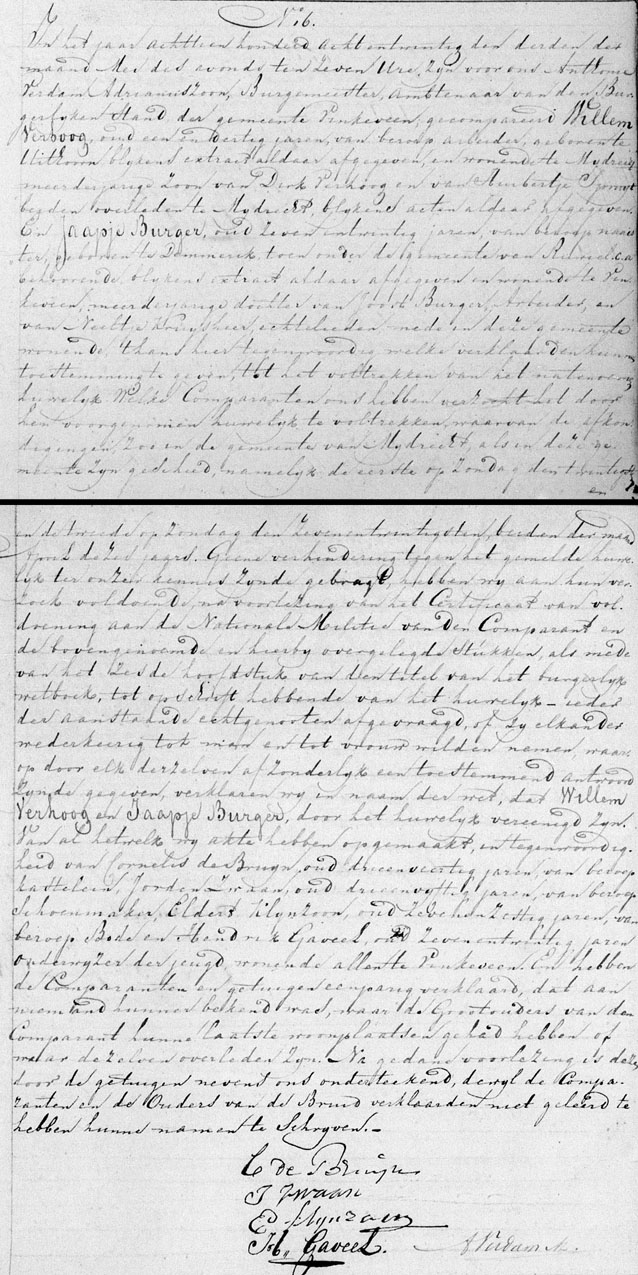 No. 6.
In het jaar achttien honderd acht en twintig den derden der
maand Mei des avonds ten zeven Ure, zyn voor ons Anthonie
Verdam Adrianuszoon, Burgemeester, Ambtenaar van den Bur-
gerlyken Stand, der gemeente Vinkeveen, gecompareerd Willem
Verhoog, oud een en dertig jaren, van beroep arbeider, geboren te
Uithoorn blykens extract aldaar afgegeven, en wonende te Mydrecht
meerderjarige zoon van Dirk Verhoog en van
beyden overleden te Mydrecht, blykens acten aldaar afgegeven,
En Jaapje Burger, oud zeven en twintig jaren, van beroep naais-
ter, geboren te Demmerik, toen onder de gemeente van Ruwiel c.a.
behoorende, blykens extract aldaar afgegeven en wonende te Vin-
keveen, meerderjarige dochter van Joost Burger, Arbeider, en
van Neeltje Kruysheer, echtelieden mede in deze gemeente
wonende, thans hier tegenwoordig welke verklaarden hunne
toestemming te geven, tot het voltrekken van het natenoemen
huwelyk Welke Comparanten ons hebben verzocht het door
hen voorgenomen huwelyk te voltrekken, waarvan de afkon-
digingen, zoo in de gemeente van Mydrecht, als in deze ge-
meente zyn geschied, namelyk de eerste op Zondag den twintigsten
en
en de tweede op zondag den zevenentwintigsten, beiden der maand
April dezes jaars. Geene verhindering tegen het gemelde huwe-
lyk ter onzer kennis zynde gebragt, hebben wy aan hun ver-
zoek voldoende, na voorlezing van het Certificaat van vol-
doening aan de Nationale Militie van den Comparant en
de bovengenoemde en hierby overgelegde stukken, als mede
van het zesde hoofdstuk van den titel van het burgerlyk
wetboek, tot opschrift hebbende van het huwelyk – ieder
der aanstaande echtgenooten afgevraagd, of zy elkander
wederkeerig tot man en tot vrouw wilden nemen, waar
op door elk derzelven afzonderlyk een toestemmend antwoord
zynde gegeven, verklaren wy in naam der wet, dat Willem
Verhoog en Jaapje Burger, door het huwelyk vereenigd zyn.
Van al hetwelk wy akte hebben opgemaakt, in tegenwoordig-
heid van Cornelis de Bruyn, oud drieenveertig jaren, van beroep
kastelein, Jorden Zwaan, oud drieenvyftig jaren, van beroep
Schoenmaker, Eldert Klynzoon, oud zeven en zestig jaren, van
beroep Bode en Hendrik Gaveel, oud zeven en twintig jaren
onderwyzer der jeugd, wonende allen te Vinkeveen. En hebben
de Comparanten en getuigen eenparig verklaard, dat aan
niemand hunner bekend was, waar de Grootouders van den
Comparant hunne laatste woonplaatsen gehad hebben of
waar dezelven overleden zyn. Na gedane voorlezing is deze
door de getuigen nevens ons onderteekend, dewyl de Compa-
ranten en de Ouders van de Bruid verklaarden niet geleerd te
hebben hunne namen te Schryven. –
C de Bruijn
J Zwaan
Ed Klynzoon
Gaveel.
A Verdam Az.